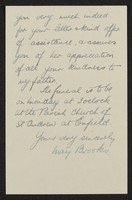 you very much indeed
for your letter & kind offer
of assistance, & assures
you of her appreciation
of all your kindness to
my father.
The funeral is to be
on Monday at 2 o'clock
at the Parish Church of
St Andrew at Enfield.
Yours very sincerely
Mary Brooks